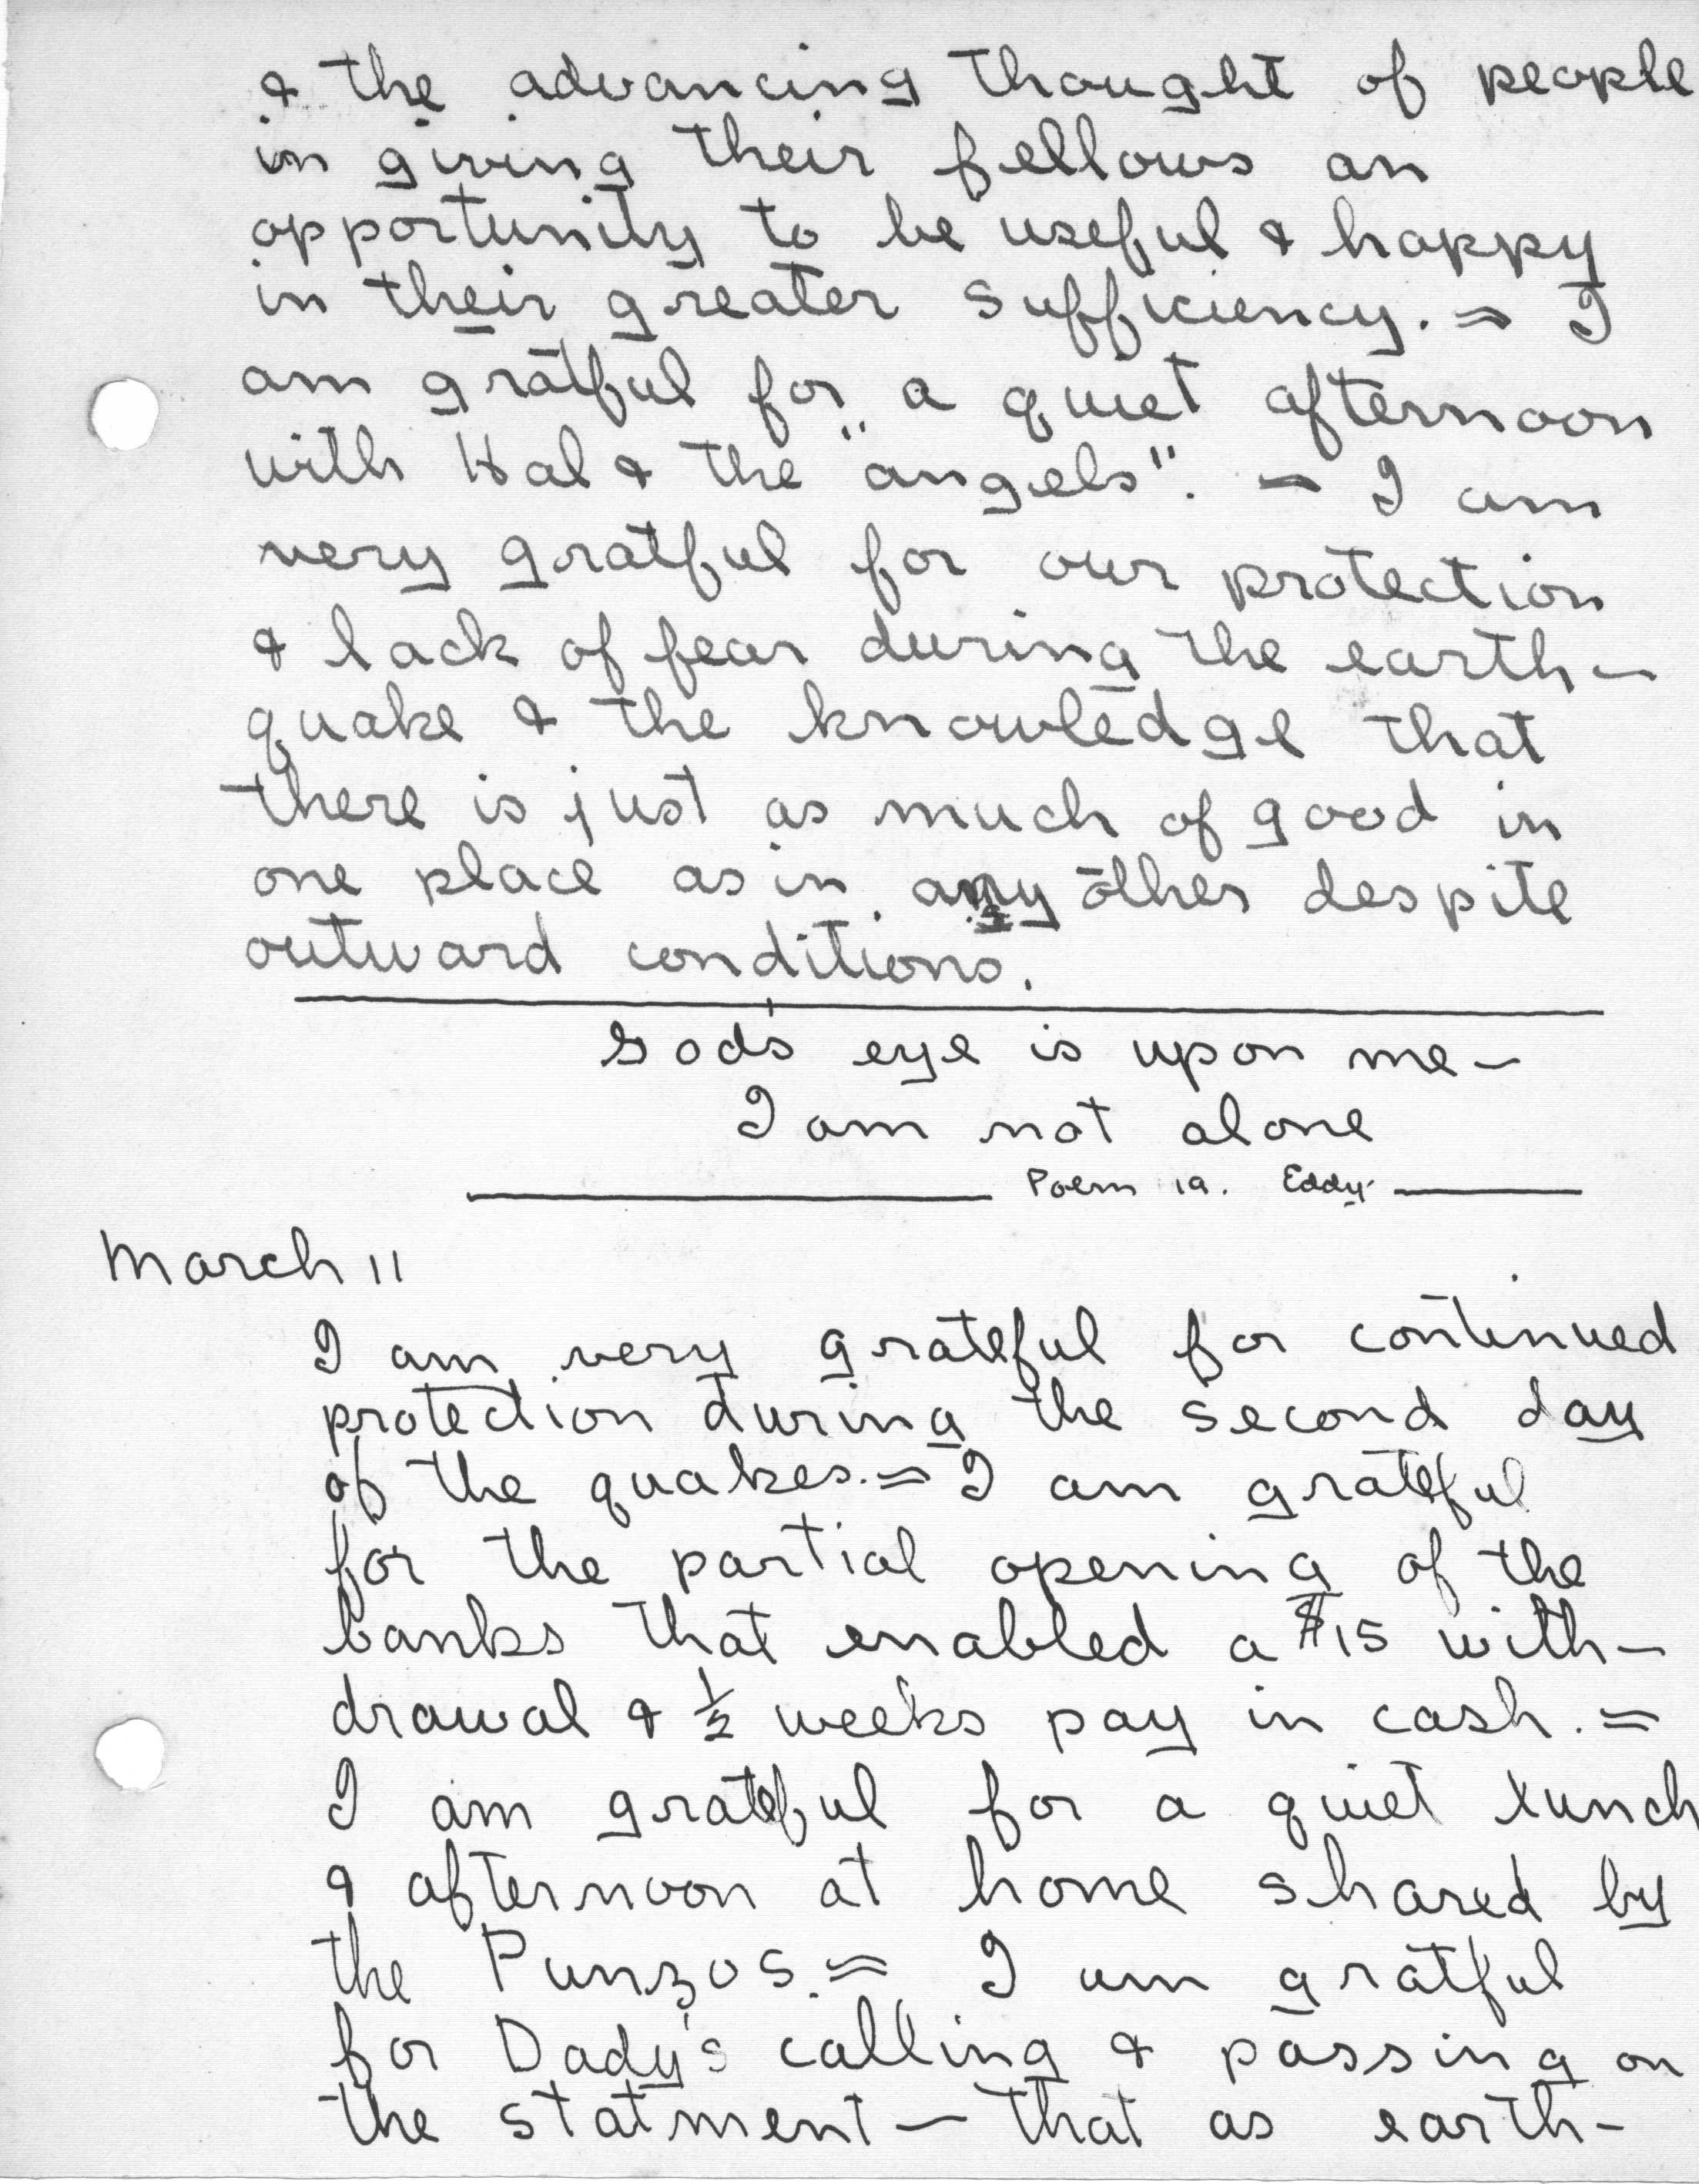 & the advancing thought of people
in giving their fellows an
opportunity to be useful & happy
in their greater sufficiency. = I
am gratful for a quiet afternoon
with Hal & the "angels". = I am
very gratful for our protection
& lack of fear during the earth-
quake & the knowledge that
there is just as much of good in
one place as in any other despite
outward conditions.
God's eye is upon me -
I am not alone
Poem 19. Eddy.
March 11
I am very grateful for continued
protection during the second day
of the quakes. = I am grateful
for the partial opening of the
banks that enabled a $15 with-
drawal & ½ weeks pay in cash. =
I am grateful for a quiet lunch
& afternoon at home shared by
the Punzos. = I am gratful
for Dady's calling & passing on
the statment - that as earth-